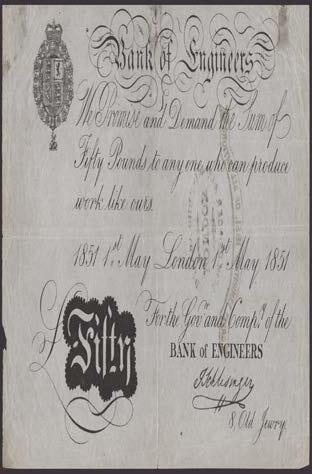 Bank of Engineers
We Promise and Demand the Sum of
Fifty Pounds to any one who can produce
work like ours.
1851 1.st May London 1.st May 1851
For the Gov.rs and Comp.y of the
BANK of ENGINEERS
£ Fifty
8, Old Jewry